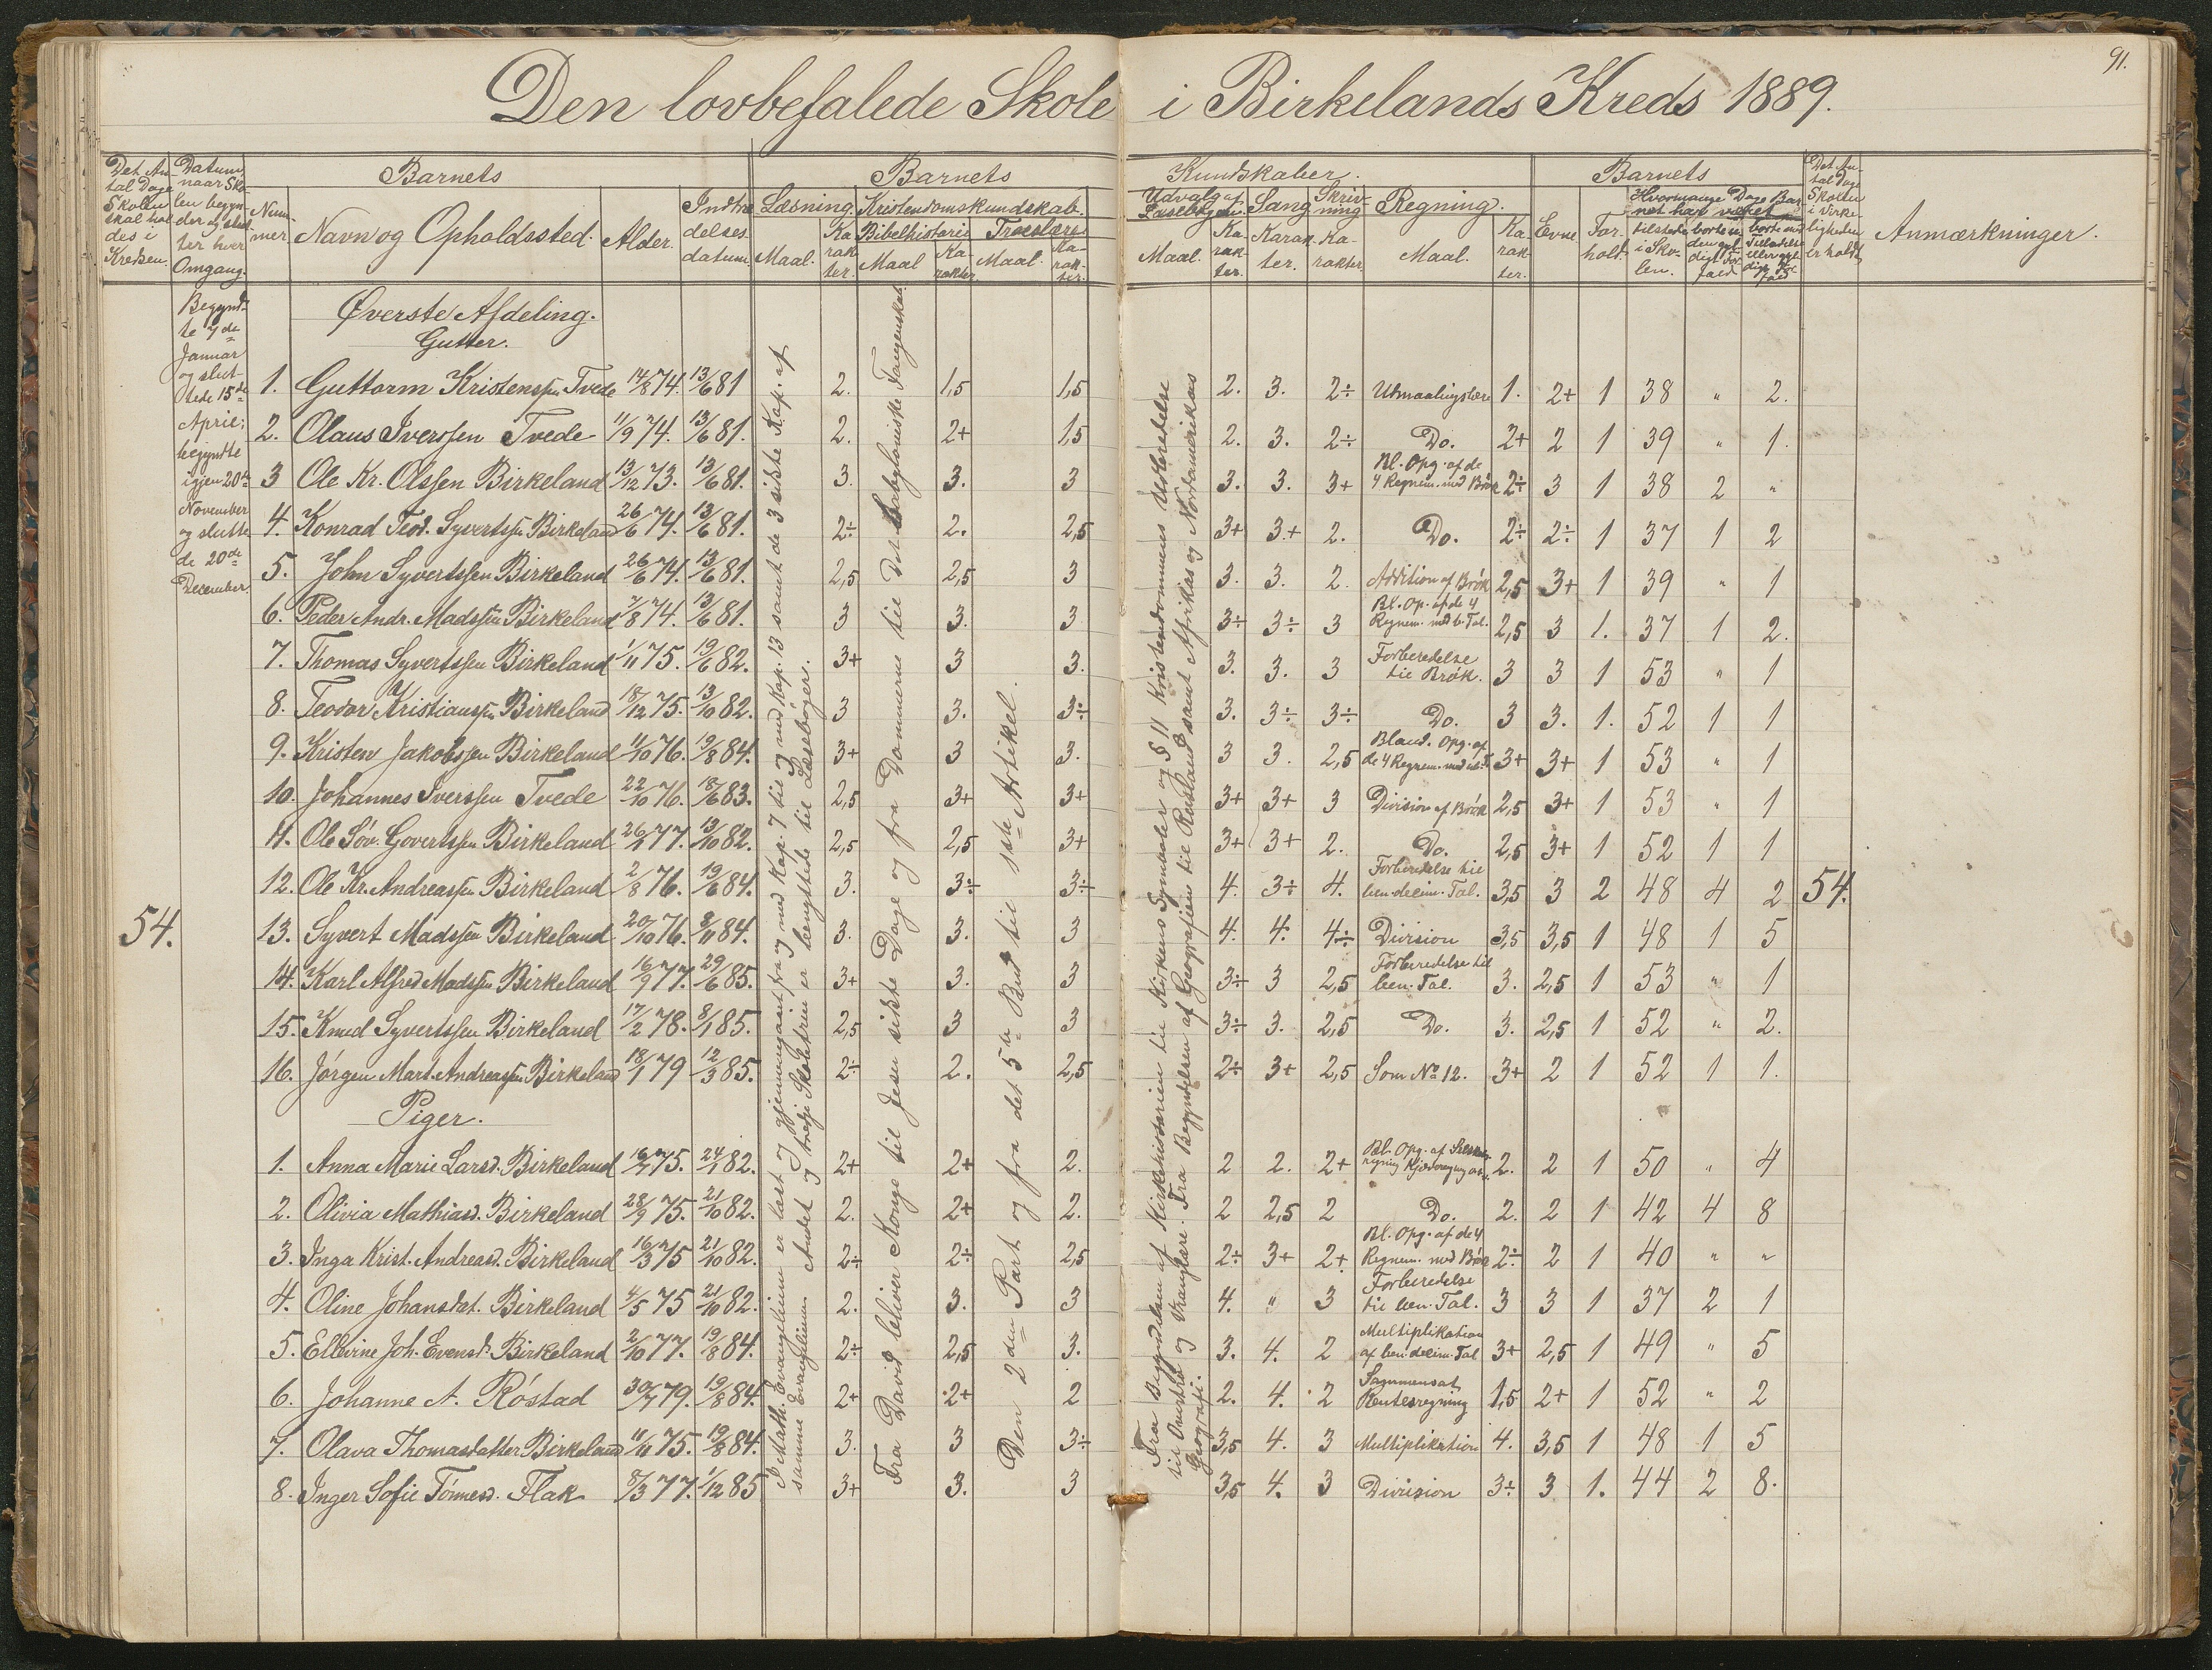 91.
Den lovbefalede Skole i Birkelands Kreds 1889.
Det An-
tal Dage
Skolen
skal hol
des i
Kredsen.
Datum,
naar Sko-
len begyn-
der og slut
ter hver
Omgang.
Barnets
Num-
mer.
Navn og Opholdssted.
Alder.
Indtræ
delses-
datum.
Barnets Kundskaber.
Læsning.
Maal.
Ka
rak
ter.
Kristendomskundskab.
Bibelhistorie
Maal
Ka-
rakter.
Troeslære
Maal.
Ka-
rak-
ter.
Udvalg af
Læsebogen.
Maal.
Ka-
rak-
ter.
Sang
Karak
ter.
Skriv-
ning
Ka-
rakter.
Regning.
Maal.
Ka
rak
ter.
Barnets
Evne
For-
hold.
Hvormange Dage Bar
net har været
tilstede
i Sko-
len.
borte u
den gyl-
digt For
fald
borte med
Tilladelse
eller gyl
digt For
fald
Det An-
tal Dage
Skolen
i Virke-
ligheden
er holdt
Anmærkninger.
Begynd-
te 7de
Januar
og slut-
tede 15de
April;
begyndte
igjen 20de
November
og slutte
de 20de
December.
54.
Øverste Afdeling.
Gutter.
1. Guttorm Kristenssen Tvede 14/8 74. 13/6 81 2. 1,5 1,5 2. 3. 2÷ Utmaalingslære 1. 2+ 1 38 " 2.
2. Olaus Iverssen Tvede 11/9 74. 13/6 81. 2. 2+ 1,5 2. 3. 2÷ Do. 2+ 2 1 39 " 1.
3 Ole Kr. Olssen Birkeland 13/12 73. 13/6 81. 3. 3. 3 3. 3. 3+ Bl. Opg. af de 4 Regnem. med Brøk 2÷ 3 1 38 2 "
4. Konrad Teod. Syvertssen Birkeland 26/6 74. 13/6 81. 2÷ 2. 2,5 3+ 3+ 2. Do. 2÷ 2÷ 1 37 1 2
5. John Syvertssen Birkeland 26/6 74. 13/6 81. 2,5 2,5 3 3. 3. 2. Addition af Brøk 2,5 3+ 1 39 " 1
6. Peder Andr. Madssen Birkeland 7/8 74. 13/6 81. 3 3. 3 3÷ 3÷ 3 Bl. Op. af de 4 Regnem. med b. Tal. 2,5 3 1. 37 1 2.
7. Thomas Syvertssen Birkeland 1/11 75. 19/6 82. 3+ 3 3. 3. 3. 3 Forberedelse til Brøk. 3 3 1 53 " 1
8. Teodor Kristianssen Birkeland 18/12 75. 13/10 82. 3 3. 3÷ 3. 3÷ 3÷ Do. 3 3. 1. 52 1 1
9. Kristen Jakobssen Birkeland 11/10 76. 19/8 84. 3+ 3 3. 3 3. 2,5 Bland. Opg. af de 4 Regnem. med ub. T. 3+ 3+ 1 53 " 1
10. Johannes Iverssen Tvede 22/10 76. 18/6 83. 2,5 3+ 3+ 3+ 3+ 3 Division af Brøk 2,5 3+ 1 53 " 1
11. Ole Søv. Govertssen Birkeland 26/1 77. 13/10 82. 2,5 2,5 3+ 3+ 3+ 2. Do. 2,5 3+ 1 52 1 1
12. Ole Kr. Andreassen Birkeland 2/8 76. 19/6 84. 3. 3÷ 3÷ 4. 3÷ 4. Forberedelse til ben. decim. Tal. 3,5 3 2 48 4 2 54.
13. Syvert Madssen Birkeland 20/10 76. 8/11 84. 3. 3. 3 4. 4. 4÷ Division 3,5 3,5 1 48 1 5
14. Karl Alfred Madssen Birkeland 16/9 77. 29/6 85. 3+ 3. 3 3÷ 3 2,5 Forberedelse til ben. Tal. 3. 2,5 1 53 " 1
15. Knud Syvertssen Birkeland 17/2 78. 8/1 85. 2,5 3 3 3÷ 3. 2,5 Do. 3. 2,5 1 52 " 2.
16. Jørgen Mart. Andreassen Birkeland 18/1 79 12/3 85. 2÷ 2. 2,5 2÷ 3+ 2,5 Som No 12. 3+ 2 1 52 1 1.
Piger.
1. Anna Marie Larsd. Birkeland 16/7 75. 24/1 82. 2+ 2+ 2. 2 2. 2+ Bl. Opg. af 2. 2 1 50 " 4
2. Olivia Mathiasd. Birkeland 28/9 75. 21/10 82. 2. 2+ 2. 2 2,5 2 Do. 2. 2 1 42 4 8
3. Inga Krist. Andreasd. Birkeland 16/3 75 21/10 82. 2÷ 2÷ 2,5 2÷ 3+ 2+ Bl. Opg. af de 4 Regnem. med Brøk 2÷ 2 1 40 " "
4. Oline Johansdat. Birkeland 4/5 75 21/10 82. 2. 3. 3 4. " 3 Forberedelse til ben. Tal. 3 3 1 37 2 1
5. Ellevine Joh. Evensd. Birkeland 2/10 77. 19/8 84. 2÷ 2,5 3. 3. 4. 2 Multiplikation af ben. decim. Tal 3+ 2,5 1 49 " 5
6. Johanne A. Røstad 30/7 79. 19/8 84. 2+ 2+ 2 2. 4. 2 Sammensat Rentesregning 1,5 2+ 1 52 " 2
7. Olava Thomasdatter Birkeland 11/6 75. 19/8 84. 3. 3 3÷ 3,5 4. 3 Multiplikation 4. 3,5 1 48 1 5
8. Inger Sofie Tønnesd. Flak 8/3 77. 1/12 85 3+ 3. 3 3,5 4. 3 Division 3÷ 3 1. 44 2 8.
I Math. Evangelium er læst og gjennemgaaet fra og med Kap. 7 til og med Kap. 13 samt de 3 sidste Kap. af
samme Evangelium. Andet og tredje Skoletrin er benyttede til Læsebøger.
Fra David bliver Konge til Jesu sidste Dage og fra Dommerne til Det babyloniske Fangenskab.
Den 2den Part og fra det 5te Bud til 1ste Artikel.
Fra Begyndelsen af Kirkehistorien til Kirkens Symboler og § 11 Kristendommens Udbredelse
til Omvendt og Vranglære. Fra Begyndelsen af Geografien til Rusland samt Afrikas og Nordamerikas
Geografi.